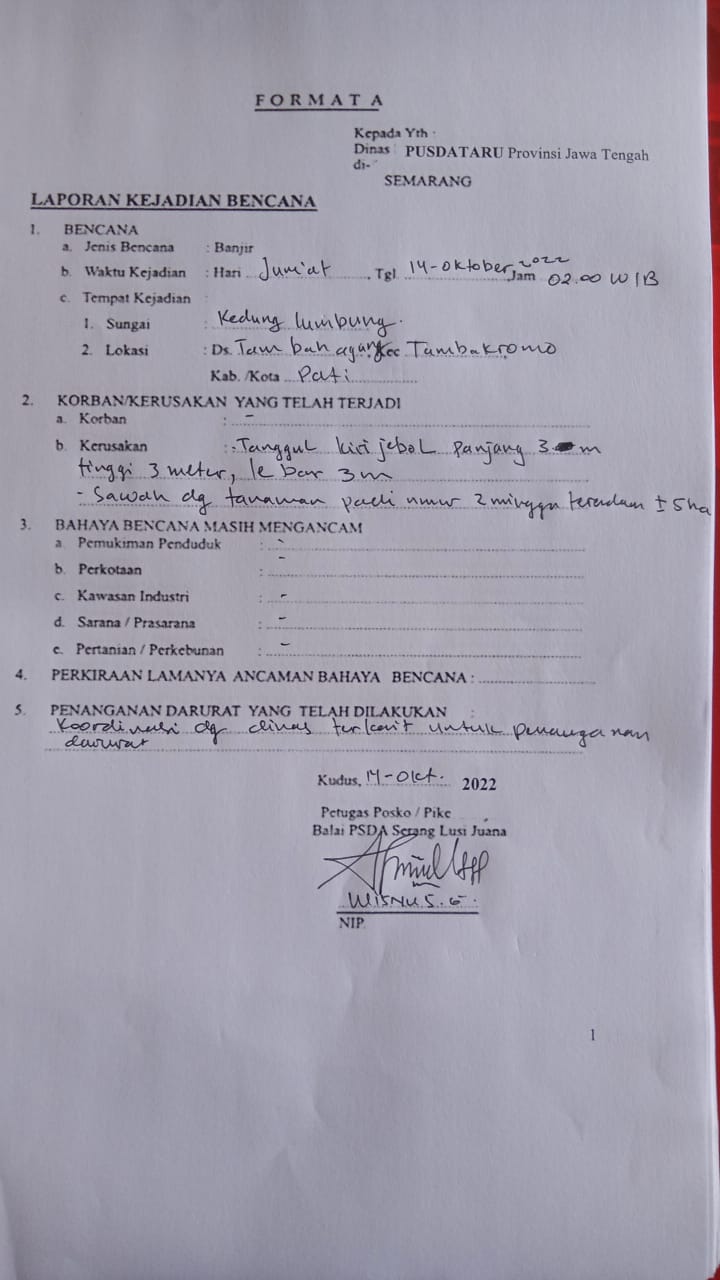 FORMAT A
Kepada Yth :
Dinas : PUSDATARU Provinsi Jawa Tengah
di-
SEMARANG
LAPORAN KEJADIAN BENCANA
1. BENCANA
a. Jenis Bencana : Banjir
b. Waktu Kejadian : Hari Jum'at, Tgl 14-Oktober 2022 Jam 02.00 WIB
c. Tempat Kejadian
1. Sungai : Kedung lumbung.
2. Lokasi : Ds. Tambahagung Kec Tambakromo
Kab. /Kota Pati
2. KORBAN/KERUSAKAN YANG TELAH TERJADI
a. Korban : -
b. Kerusakan : - Tanggul kiri jebol panjang 3 m
tinggi 3 meter, lebar 3 m
- Sawah dg tanaman padi umur 2 minggu terendam ± 5 ha
3. BAHAYA BENCANA MASIH MENGANCAM
a. Pemukiman Penduduk : -
b. Perkotaan : -
c. Kawasan Industri : -
d. Sarana / Prasarana : -
e. Pertanian / Perkebunan : -
4. PERKIRAAN LAMANYA ANCAMAN BAHAYA BENCANA :
5. PENANGANAN DARURAT YANG TELAH DILAKUKAN :
Koordinasi dg dinas terkait untuk penanganan
darurat
Kudus, 14-Okt. 2022
Petugas Posko / Pike
Balai PSDA Serang Lusi Juana
WISNU S. G.
NIP.
1